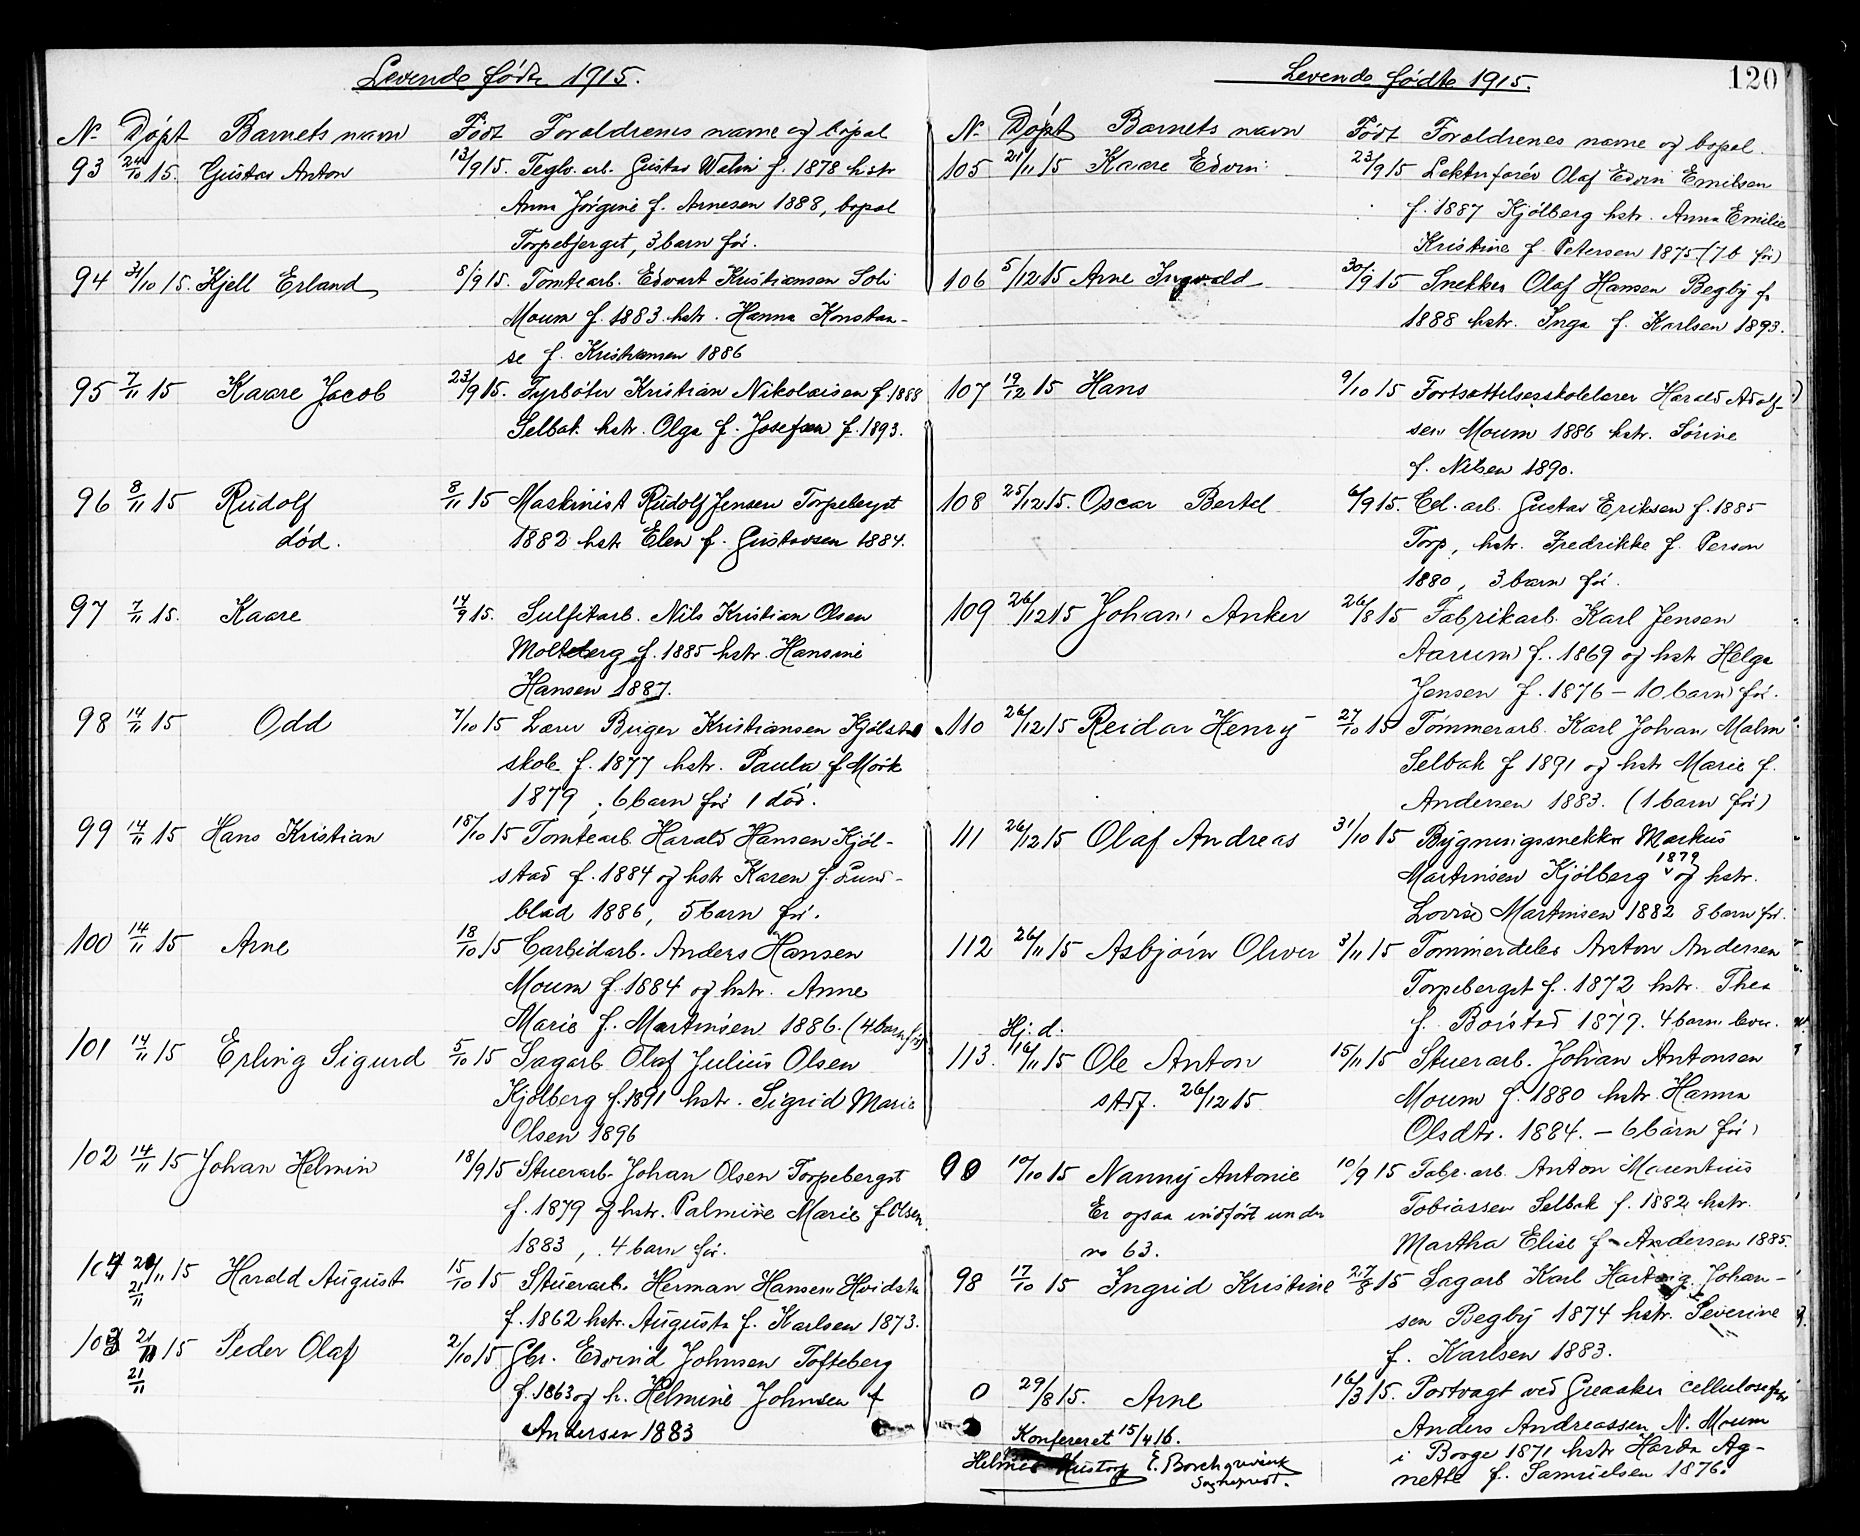 Levende födte 1915.
N. Döpt Barnets navn Födt Foreldrenes navne og bopæl
93 24/10 15. Gustav Anton 13/9 15. Teglv. arb. Gustav Walin f. 1878 hstr
Anna Jörgine f. Arnesen 1888, bopæl
Torpebjerget, 3 barn för.
94 31/10 15. Kjell Erland 8/9 15. Tomtearb. Edvart Kristiansen Soli
Moum f. 1883 hstr. Hanna Konstan-
se f. Kristiansen 1886
95 7/11 15 Kaare Jacob 23/9 15. Fyrböter Kristian Nikolaisen f. 1888
Selbak hstr. Olga f. Josefsen f. 1893.
96 8/11 15 Rudolf 8/11 15 Maskinist Rudolf Jensen Torpeberget
död. 1882 hstr Elen f. Gustavsen 1884.
97 7/11 15. Kaare 14/9 15. Sulfitarb. Nils Kristian Olsen
Molteberg f. 1885 hstr. Hansine
Hansen 1887.
98 14/11 15 Odd 7/10 15 Lærer Birger Kristiansen Kjölstad
skole f. 1877 hstr. Paula f Mörk
1879, 6 barn för 1 död.
99 14/11 15 Hans Kristian 18/10 15 Tomtearb. Harald Hansen Kjöl-
stad f. 1884 og hstr Karen f. Lund-
blad 1886, 5 barn för.
100 14/11 15 Arne 18/10 15 Carbidarb. Anders Hansen
Moum f. 1884 og hstr. Anne
Marie f. Martinsen 1886. (4 barn för)
101 14/11 15 Erling Sigurd 5/10 15 Sagarb Olaf Julius Olsen
Kjölberg f. 1891 hstr. Sigrid Marie
Olsen 1896
102 14/11 15 Johan Helmin 18/9 15 Stuerarb. Johan Olsen Torpeberget
f. 1879 og hstr. Palmine Marie f Olsen
1883, 4 barn för.
104 21/11 15 Harald August 15/10 15 Stuerarb. Herman Hansen Hvidsten
21/11 f. 1862 hstr. Augusta f. Karlsen 1873.
103 21/11 15 Peder Olaf 2/10 15 Gbr. Edvind Johnsen Tofteberg
21/11 f. 1863 og h. Helmine Johnsen f
Andersen 1883
Levende födte 1915.
120
N. Döpt Barnets navn Födt Foreldrenes navne og bopæl.
105 21/11 15 Kaare Edvin 23/9 15 Lektuförer Olaf Edvin Emilsen
f. 1887 Kjölberg hstr. Anna Emilie
Kristine f. Petersen 1875 (7 b för)
106 5/12 15 Arne Ingvald 30/9 15 Snekker Olaf Hansen Begby f.
1888 hstr. Inga f. Karlsen 1893.
107 19/12 15 Hans 9/10 15 Fortsættelsesskolelærer Harald Adolf-
sen Moum 1886 hstr. Sörine
f. Nilsen 1890.
108 25/12 15. Oscar Bertel 6/9 15. Cel. arb. Gustav Eriksen f. 1885
Torp, hstr. Fredrikke f. Person
1880, 3 barn för.
109 26/12 15 Johan Anker 26/8 15 Fabrikarb. Karl Jensen
Aarum f. 1869 og hstr Helga
Jensen f. 1876 – 10 barn för.
110 26/12 15 Reidar Henry 27/10 15 Tömmerarb. Karl Johan Malm
Selbak f 1891 og hstr Marie f.
Andersen 1883. (1 barn för)
111 26/12 15 Olaf Andreas 31/10 15 Bygningssnekker Markus
Martinsen Kjölberg 1879 og hstr.
Lovise Martinsen 1882 8 barn för.
112 26/11 15 Asbjörn Oliver 3/11 15 Tömmerdeler Anton Andersen
Torpeberget f. 1872 hstr. Thea
f. Börstad 1877. 4 barn lev.
Hj. d.
113. 16/11 15 Ole Anton 15/11 15 Stuerarb. Johan Antonsen
stadf. 26/12 15 Moum f. 1880 hstr Hanna
Olsdtr. 1884. – 6 barn för
90 10/10 15 Nanny Antonie 10/9 15 Fabr. arb. Anton Mauritius
Er ogsaa indfört under Tobiassen Selbak f. 1882 hstr.
no 63. Martha Elise f. Andersen 1885.
98 17/10 15 Ingrid Kristine 27/8 15 Sagarb Karl Hartvig Johan-
sen Begby 1874 hstr. Severine
f. Karlsen 1883.
0 29/8 15. Arne 16/3 15. Portvagt ved Greaaker cellulosefabr
Anders Andreassen N. Moum
i Borge 1871 hstr Harda Ag-
nette f. Samuelsen 1876.
Konfereret 15/4 16.
E. Borchgrevink
Sogneprest.